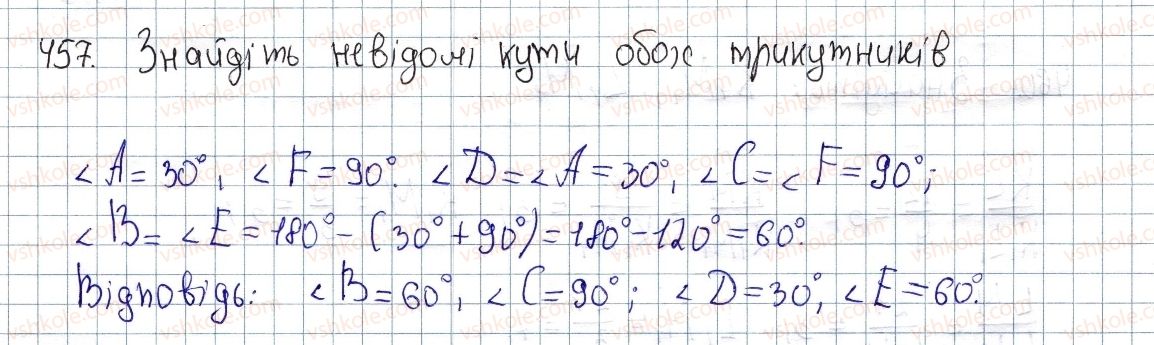 457. Знайдіть невідомі кути обох трикутників
∠A = 30°, ∠F = 90°. ∠D = ∠A = 30°, ∠C = ∠F = 90°;
∠B = ∠E = 180° - (30° + 90°) = 180° - 120° = 60°.
Відповідь: ∠B = 60°, ∠C = 90°; ∠D = 30°, ∠E = 60°.